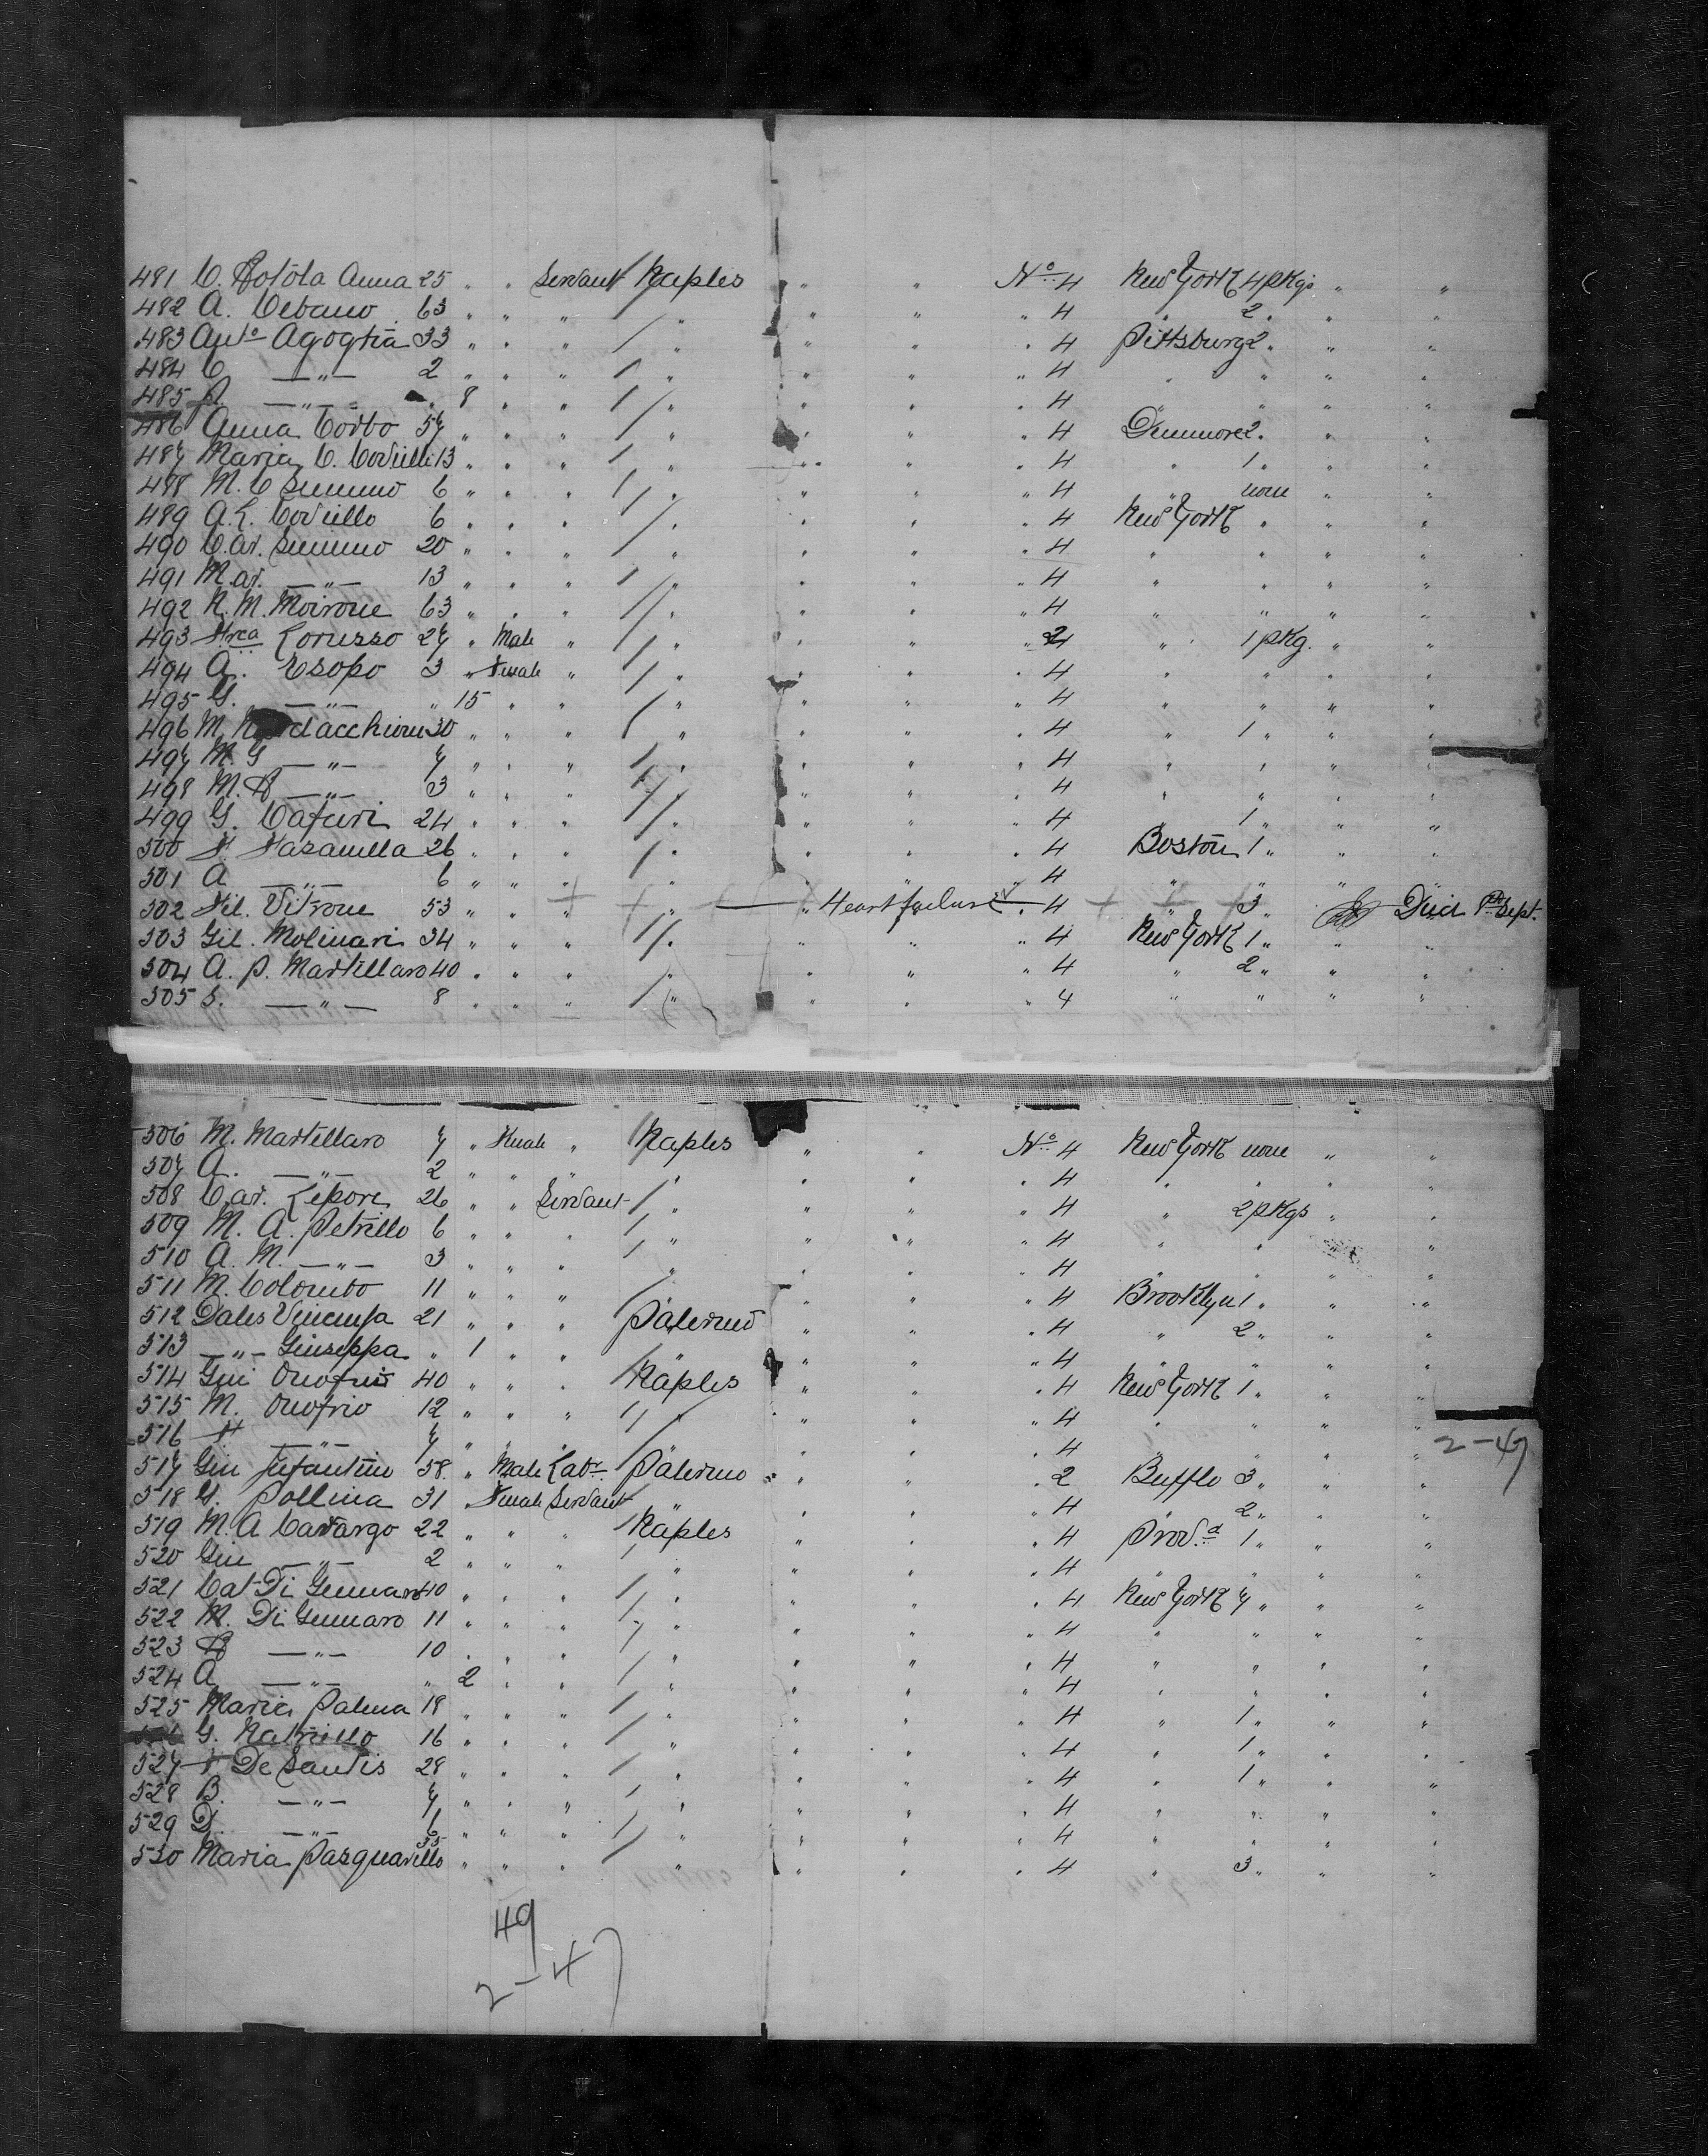 481 C. Rotola Anna 25 " " Servant Naples " " No. 4 New York 4 pkgs " "
482 A. Cebano 63 " " " " " " " 4 " 2 " " "
483 Anto Agoglia 33 " " " " " " " 4 Pittsburg 2 " " "
484 C —"— 2 " " " " " " " 4 " " " "
485 —"— " 8 " " " " " " 4 " " " "
486 Anna Corbo 57 " " " " " " " 4 Dunmore 2 " " "
487 Maria C. Coviello 13 " " " " " " " 4 " 1 " " "
488 M. C Summo 6 " " " " " " " 4 " none " "
489 A. L. Coviello 6 " " " " " " " 4 New York " " "
490 Car. Summo 20 " " " " " " " 4 " " " "
491 Mar. —"— 13 " " " " " " " 4 " " " "
492 R. M. Moirone 63 " " " " " " " 4 " " " "
493 Frca Lorusso 27 " Male " " " " " 2 " 1 pKg. " "
494 A. Esopo 3 " Female " " " " " 4 " " " "
495 G. —"— " 15 " " " " " " 4 " " " "
496 M. dacchione 30 " " " " " " " 4 " 1 " " "
497 M. G —"— 7 " " " " " " " 4 " " " "
498 M. —"— 3 " " " " " " " 4 " " " "
499 G. Cafuri 24 " " " " " " " 4 " 1 " " "
500 F. Fasanella 26 " " " " " " " 4 Boston 1 " " "
501 A —"— 6 " " " " " " " 4 " " " "
502 Fil. Vitrone 53 " " " " " Heart failure " 4 " 3 " Died 8th Sept.
503 Gil. Molinari 34 " " " " " " " 4 New York 1 " " "
504 A. P. Martellaro 40 " " " " " " " 4 " 2 " " "
505 S. —"— 8 " " " " " " " 4 " " " "
506 M. Martellaro 7 " Female " Naples " " No. 4 New York none " "
507 A. —"— 2 " " " " " " " 4 " " " "
508 Car. Lepore 26 " " Servant " " " " 4 " 2 pKgs " "
509 M. A. Petrillo 6 " " " " " " " 4 " " " "
510 A. M. —"— 3 " " " " " " " 4 " " " "
511 M. Colombo 11 " " " " " " " 4 Brooklyn 1 " " "
512 Dales Vincenza 21 " " " Palermo " " " 4 " 2 " " "
513 —"— Giuseppa " 1 " " " " " " 4 " " " "
514 Giu Onofrio 40 " " " Naples " " " 4 New York 1 " " "
515 M. Onofrio 12 " " " " " " " 4 " " " "
516 F —"— 7 " " " " " " " 4 " " " "
2-47
517 Giu Infantino 58 " Male Labr. Palermo " " " 2 Bufflo 3 " " "
518 G. Pollina 31 " Female Servant " " " " 4 " 2 " " "
519 M. A Cavargo 22 " " " Naples " " " 4 Prov.d 1 " " "
520 Giu —"— 2 " " " " " " " 4 " " " "
521 Cat Di Gennaro 40 " " " " " " " 4 New York 7 " " "
522 M. Di Gennaro 11 " " " " " " " 4 " " " "
523 —"— 10 " " " " " " " 4 " " " "
524 A —"— " 2 " " " " " " 4 " " " "
525 Maria Palma 18 " " " " " " " 4 " 1 " " "
G. Natrisso 16 " " " " " " " 4 " 1 " " "
527 F De Santis 28 " " " " " " " 4 " 1 " " "
528 B. —"— 7 " " " " " " " 4 " " " "
529 D. —"— 6 " " " " " " " 4 " " " "
530 Maria Pasquariello 35 " " " " " " " 4 " 3 " " "
49
2-47